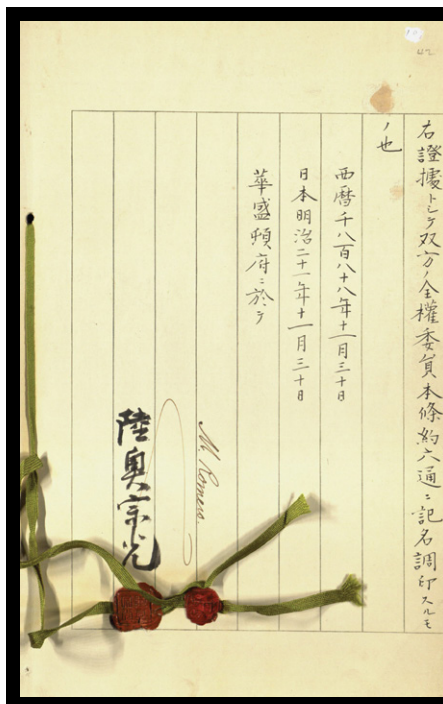 右證據トシテ双方ノ全權委員本條約六通ニ記名調印スルモ
ノ也
西曆千八百八十八年十一月三十日
日本明治二十一年十一月三十日
華盛頓府ニ於テ
M. Romero.
陸奥宗光